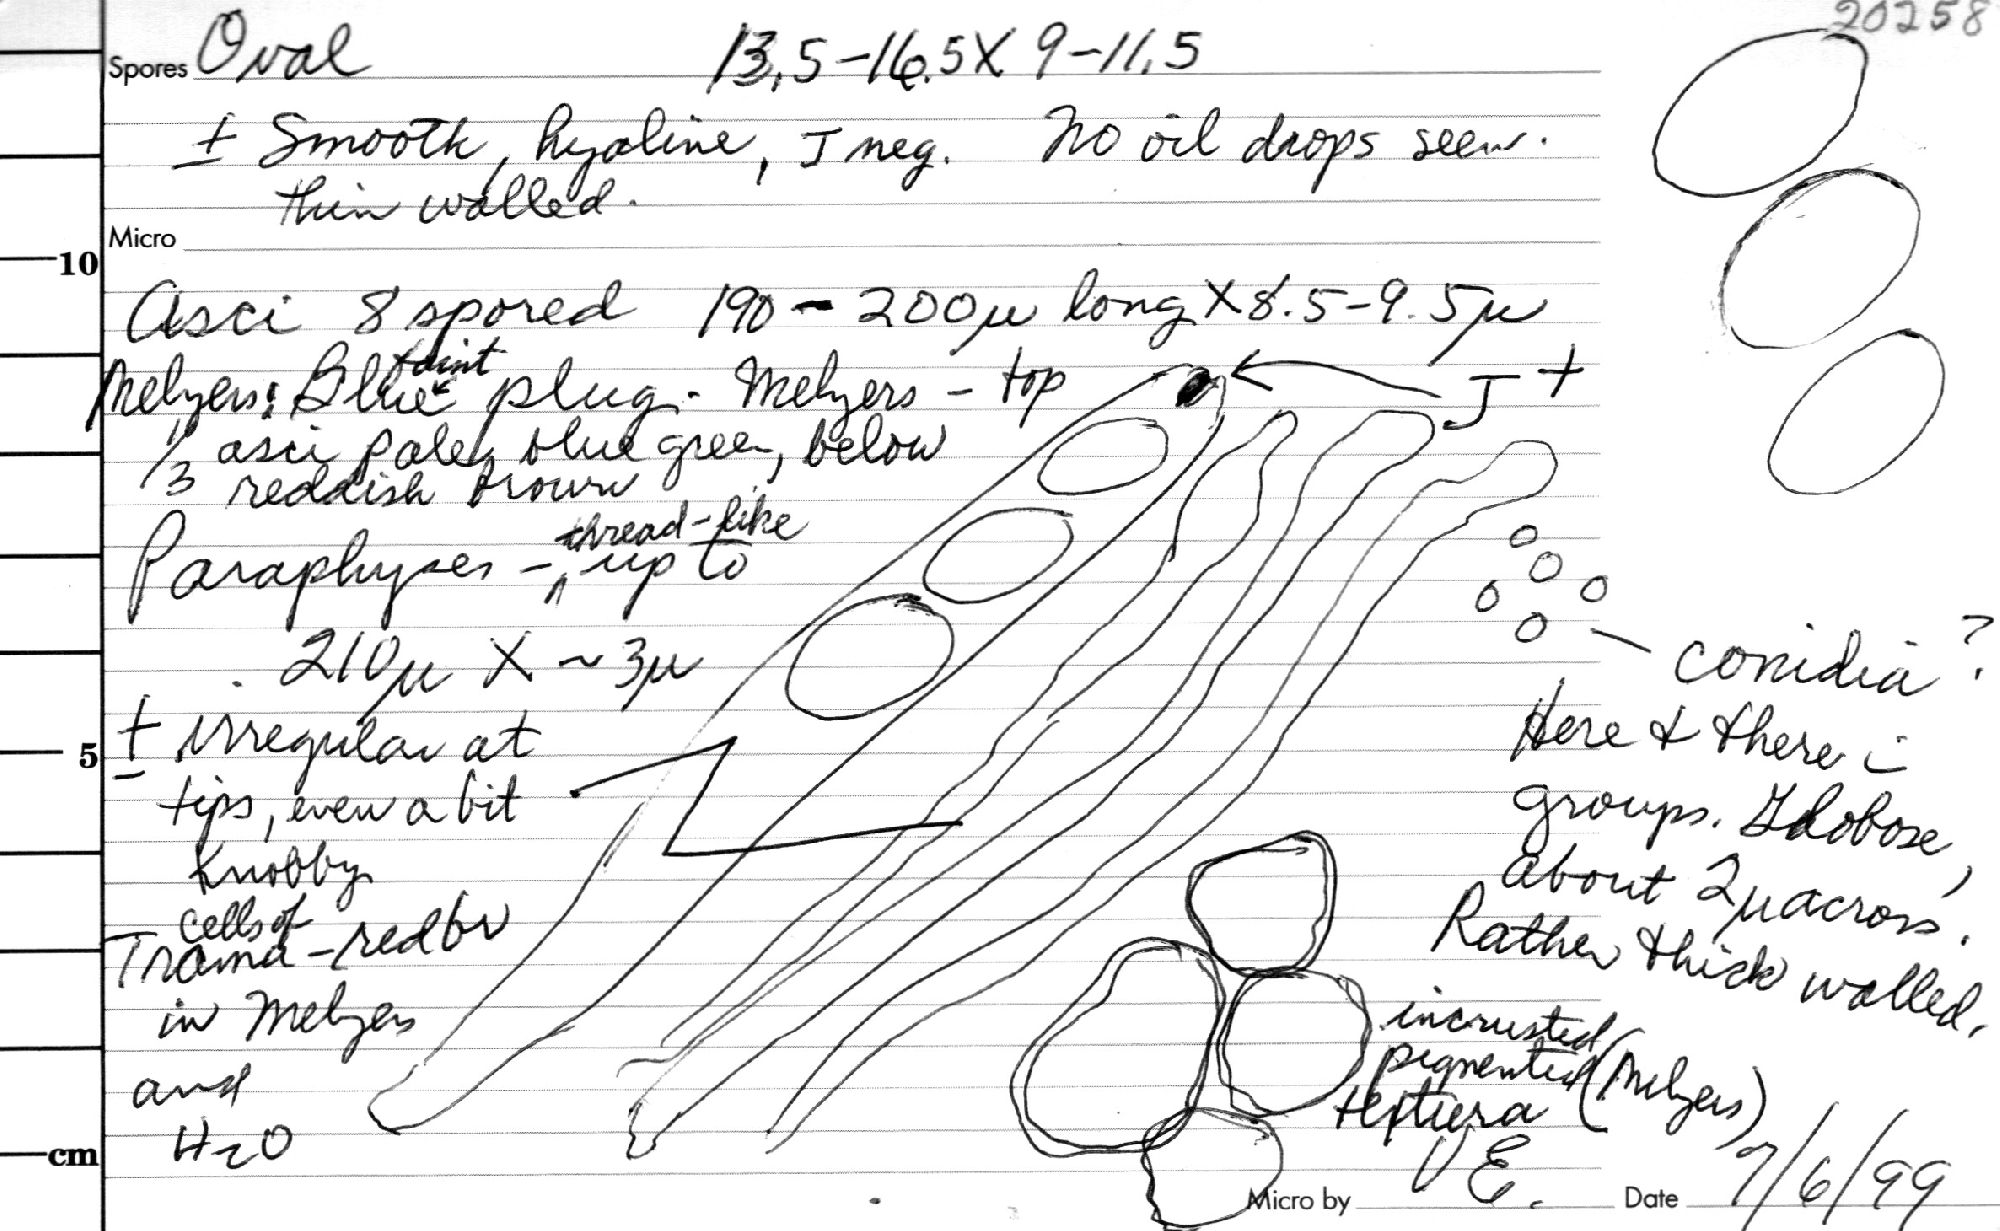 20258
Spores Oval 13.5-16.5 X 9-11.5
± Smooth, hyaline, J neg. No oil drops seen.
thin walled.
Micro
10
Asci 8 spored 190-200µ long X 8.5-9.5µ
Melzers: Blue faint plug. Melzers - top
1/3 asci pale blue green, below
reddish brown
J+
Paraphyses - thread-like up to
210µ X ~3µ
± irregular at
tips, even a bit
knobby
5
cells of
Trama - red br
in Melzers
and
H2O
cm
conidia?
Here & there in
groups. Globose,
about 2µ across.
Rather thick walled.
incrusted
pigmented (Melzers)
Micro by E. Date 7/6/99